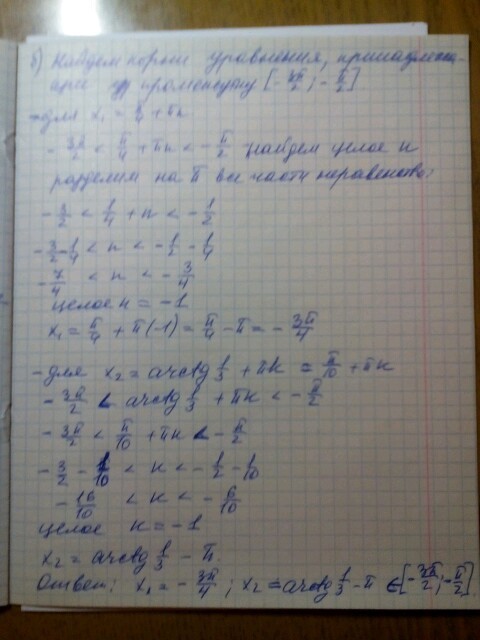 б) Найдем корни уравнения, принадлежащие промежутку [-3π/2; -π/2]
- для x₁ = π/4 + πn
-3π/2 < π/4 + πn < -π/2 найдем целое n
разделим на π все части неравенства:
-3/2 < 1/4 + n < -1/2
-3/2 - 1/4 < n < -1/2 - 1/4
-7/4 < n < -3/4
целое n = -1
x₁ = π/4 + π(-1) = π/4 - π = -3π/4
- для x₂ = arctg 1/3 + πk = π/10 + πk
-3π/2 < arctg 1/3 + πk < -π/2
-3π/2 < π/10 + πk < -π/2
-3/2 - 1/10 < k < -1/2 - 1/10
-16/10 < k < -6/10
целое k = -1
x₂ = arctg 1/3 - π
Ответ: x₁ = -3π/4; x₂ = arctg 1/3 - π ∈ [-3π/2; -π/2]